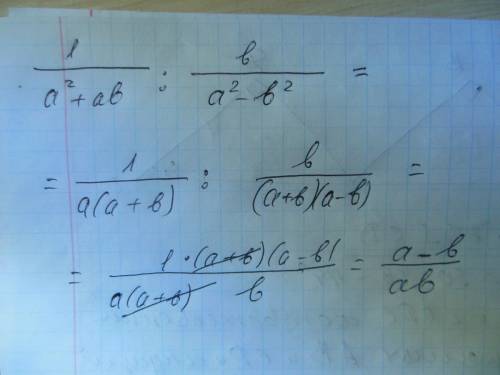 1/(a²+ab) : b/(a²-b²) =
= 1/(a(a+b)) : b/((a+b)(a-b)) =
= (1·(a+b)(a-b))/(a(a+b) b) = (a-b)/(ab)